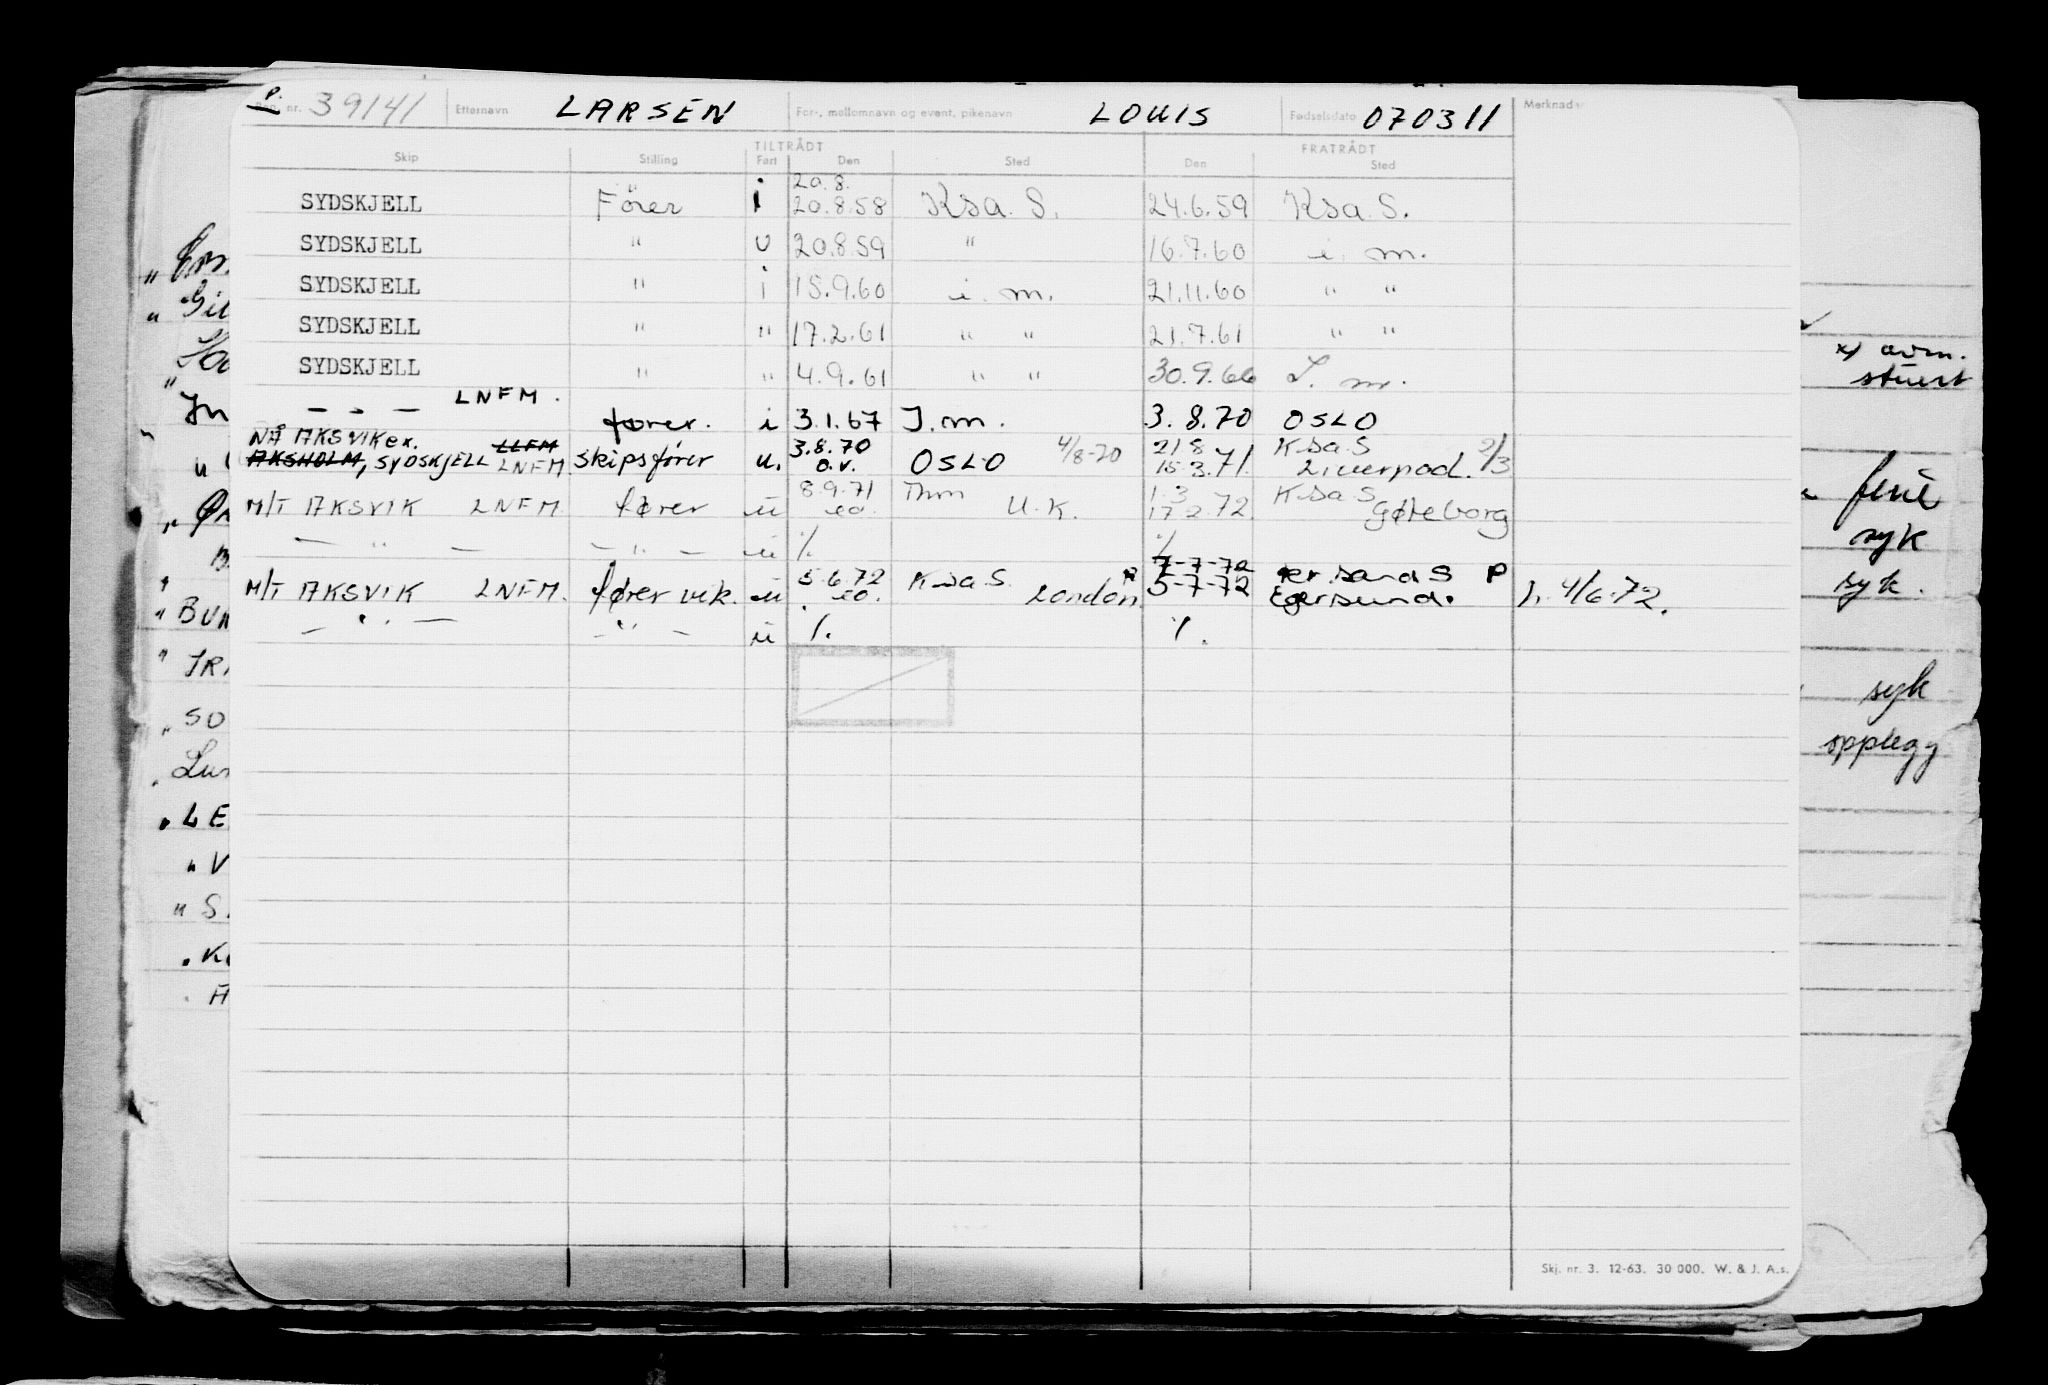 P. Reg. nr. 39141 Etternavn LARSEN For-, mellomnavn og event. pikenavn LOUIS Fødselsdato 070311 Merknader
TILTRÅDT FRATRÅDT
Skip Stilling Fart Den Sted Den Sted
20.8.
SYDSKJELL Fører i 20.8.58 Ksa. S. 24.6.59 Ksa. S.
SYDSKJELL " u 20.8.59 " 16.7.60 i. m.
SYDSKJELL " i 15.9.60 i. m. 21.11.60 " "
SYDSKJELL " " 17.2.61 " " 21.7.61 " "
SYDSKJELL " " 4.9.61 " " 30.9.66 I. m.
— " — LNFM. fører. i 3.1.67 I.m. 3.8.70 OSLO
NÅ AKSVIK ex. LLFM 3.8.70 4/8-70 21 8 Ksa S 2/3
AKSHOLM, SYDSKJELL LNFM skipsfører u. o.v. OSLO 15.3.71. Liverpool.
8.9.71 Thm 1.3 Ksa S
M/T AKSVIK LNFM. fører u eo. U.K. 17 2.72. Gøteborg
— " — — " — u % %
5.6.72 Ksa S. 7-7-72 S P
M/T AKSVIK LNFM. fører vik. u eo. London 5-7-72 Egersund. 4/6-72.
— " — — " — u %. %.
Skj. nr. 3. 12-63. 30 000. W. & J. A.s.
x) avm.
stuert
ferie
syk
syk.
syk
opplegg
BUN
LE
SO